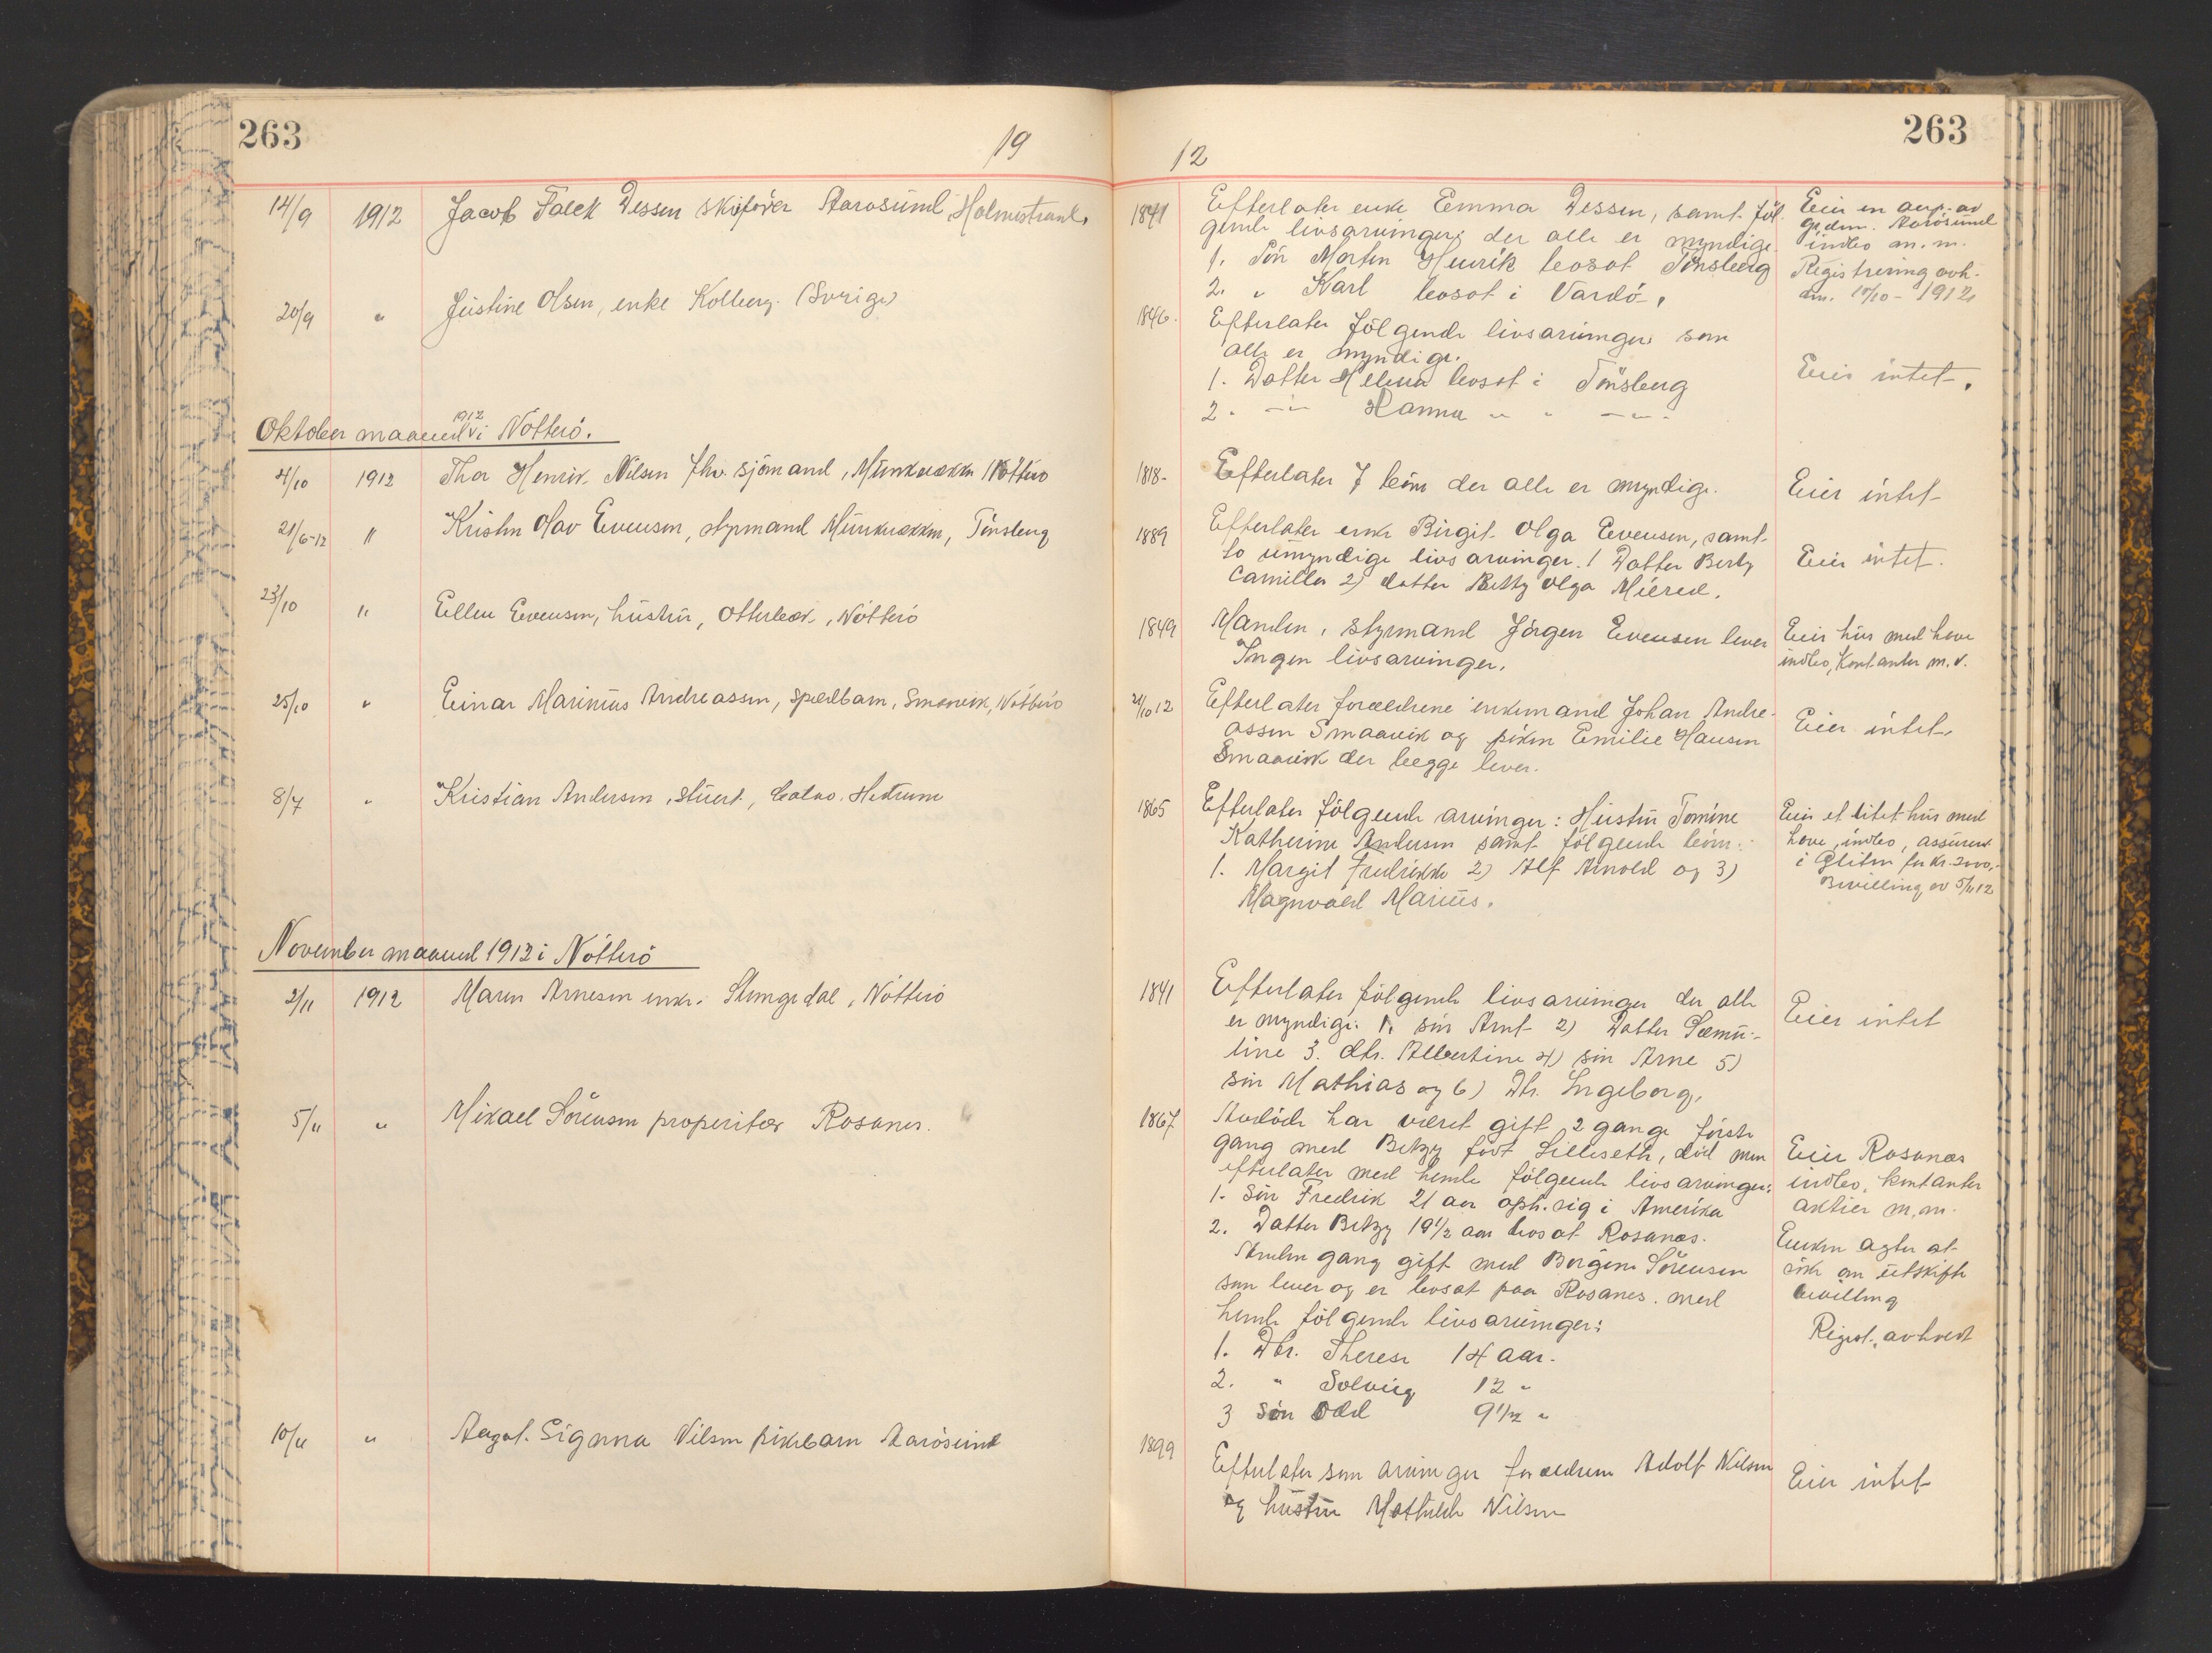 263
19
12
263
14/9 1912 Jacob Falck Wessen skipfører Aarosund Holmestrand
1841 Efterlater enke Emma Wessen, samt føl-
gende livsarvinger der alle er myndige
1. Søn Morten Henrik bosat Tønsberg
2. " Karl bosat i Vardø,
Eier en anp. av
gdm. Aarøsund
indbo m. m.
Registrering avh.
dm. 10/10 - 1912
20/9 " Justine Olsen, enke Kolberg. (Sverige)
1846. Efterlater følgende livsarvinger som
alle er myndige.
1. Datter Helena bosat i Tønsberg
2. -"- Hanna " " -"-
Eier intet.
Oktober maaned 1912 i Nøtterø.
4/10 1912 Thor Henrik Nilsen fhv. sjømand, Munkerekka Nøtterø
1818- Efterlater 7 børn der alle er myndige.
Eier intet
21/6-12 " Kristen Olav Evensen, styrmand Munkerekken, Tønsberg
1889 Efterlater enke Birgit Olga Evensen, samt
to umyndige livsarvinger. 1 Datter Berly
Camilla 2) datter Betty Olga Mierel.
Eier intet.
23/10 " Ellen Evensen, hustru, Otterbæk, Nøtterø
1849 Manden, styrmand Jørgen Evensen lever
Ingen livsarvinger.
Eier hus med have
indbo, Kontanter m. v.
25/10 " Einar Marinius Andreassen, spædbarn, Smaavik, Nøtterø
24/10 12 Efterlater forældrene enkemand Johan Andre-
assen Smaavik og piken Emilie Hansen
Smaavik der begge lever.
Eier intet
8/7 " Kristian Andersen, stuert, Hedrum
1865 Efterlater følgende arvinger: Hustru Tomine
Katherine Andersen samt følgende børn:
1. Margit Fredrikke 2) Alf Arnold og 3)
Magnvald Marius.
Eier et litet hus med
have, indbo, assurert
i Gliten for kr. 2000,-
Bevilling av 5/11 12
November maaned 1912 i Nøtterø
2/11 1912 Maren Arnesen enke. Slengedal, Nøtterø
1841 Efterlater følgende livsarvinger der alle
er myndige: 1. søn Arnt 2) Datter Samu-
line 3. dtr. Albertine 4) søn Arne 5)
søn Mathias og 6) Dtr. Ingeborg,
Eier intet
5/11 " Mikael Sörensen properitær Rosanes.
1867 Avdøde har været gift 2 gange første
gang med Betzy født Lilleseth, død men
efterlater med hende følgende livsarvinger:
1. Søn Fredrik 21 aar oph. sig i Amerika
2. Datter Betzy 19 1/2 aar bosat Rosanæs.
Anden gang gift med Borgine Sørensen
som lever og er bosat paa Rosanes. med
hende følgende livsarvinger:
1. Dtr. Therese 14 aar.
2. " Solveig 12 "
3 Søn Odd 9 1/2 "
Eier Rosanæs
indbo, kontanter
aktier m. m.
Enken agter at
søke om uskifte
bevilling
Regist. avholdt
10/11 " Aagot Signna Nilsen pikebarn Aarøsund
1899 Efterlater som arvinger forældrene Adolf Nilsen
og hustru Mathilde Nilsen
Eier intet